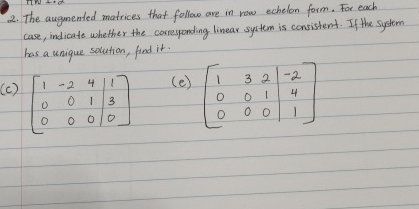 HW 1.2
2. The augmented matrices that follow are in row echelon form. For each
case, indicate whether the corresponding linear system is consistent. If the system
has a unique solution, find it.
(c) [ 1 -2 4 | 1 ]
[ 0 0 1 | 3 ]
[ 0 0 0 | 0 ]
(e) [ 1 3 2 | -2 ]
[ 0 0 1 | 4 ]
[ 0 0 0 | 1 ]